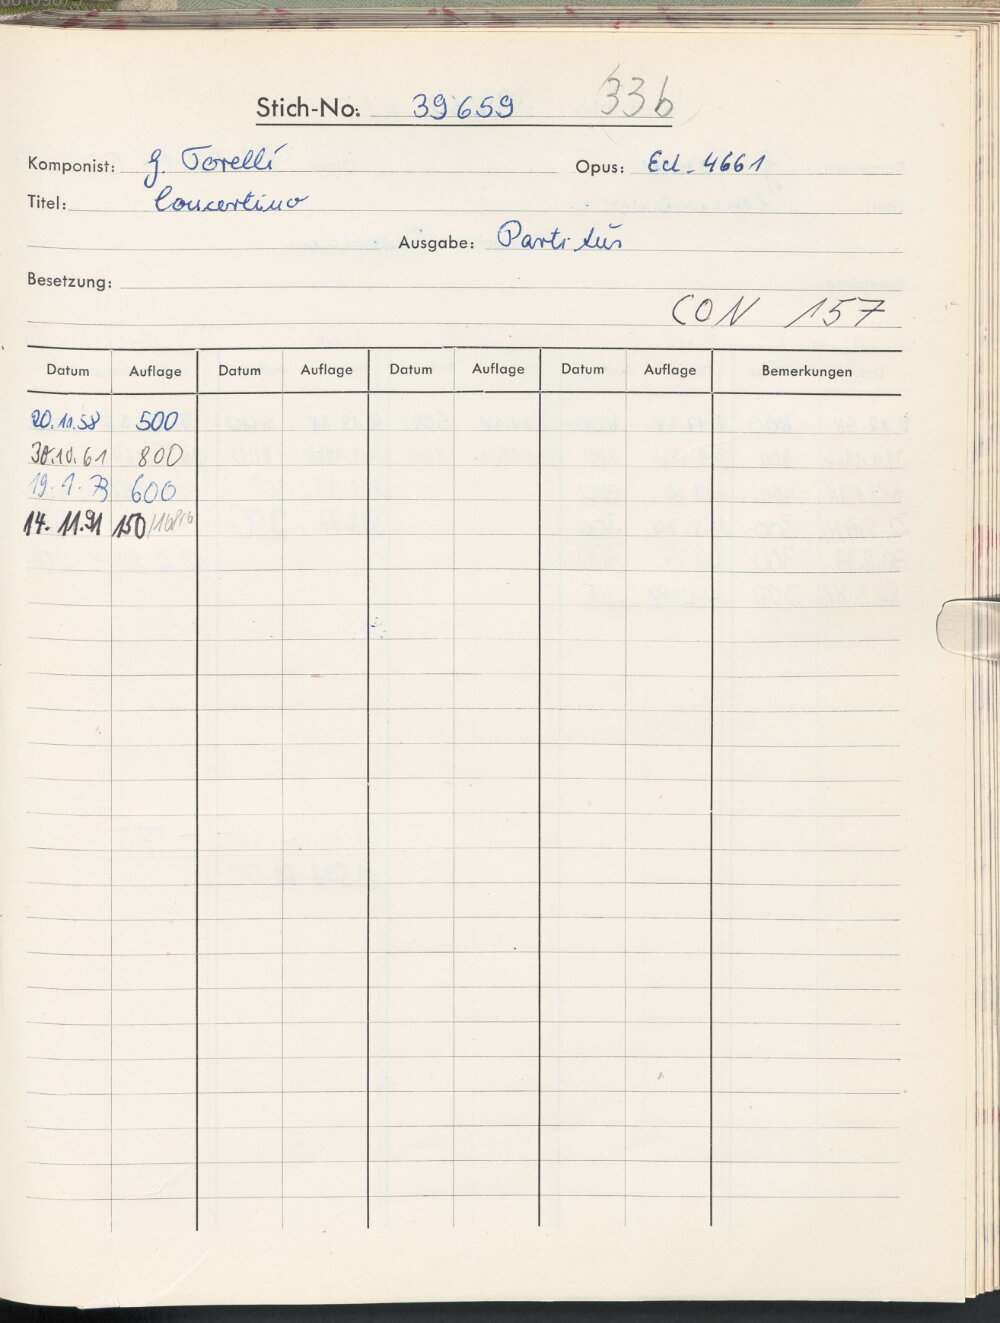 Stich-No: 39659 33b
Komponist: G. Torelli Opus: Ed. 4661
Titel: Concertino
Ausgabe: Partitur
Besetzung:
CON 157
Datum Auflage Datum Auflage Datum Auflage Datum Auflage Bemerkungen
20.11.58 500
30.10.61 800
19.1.73 600
14.11.91 150